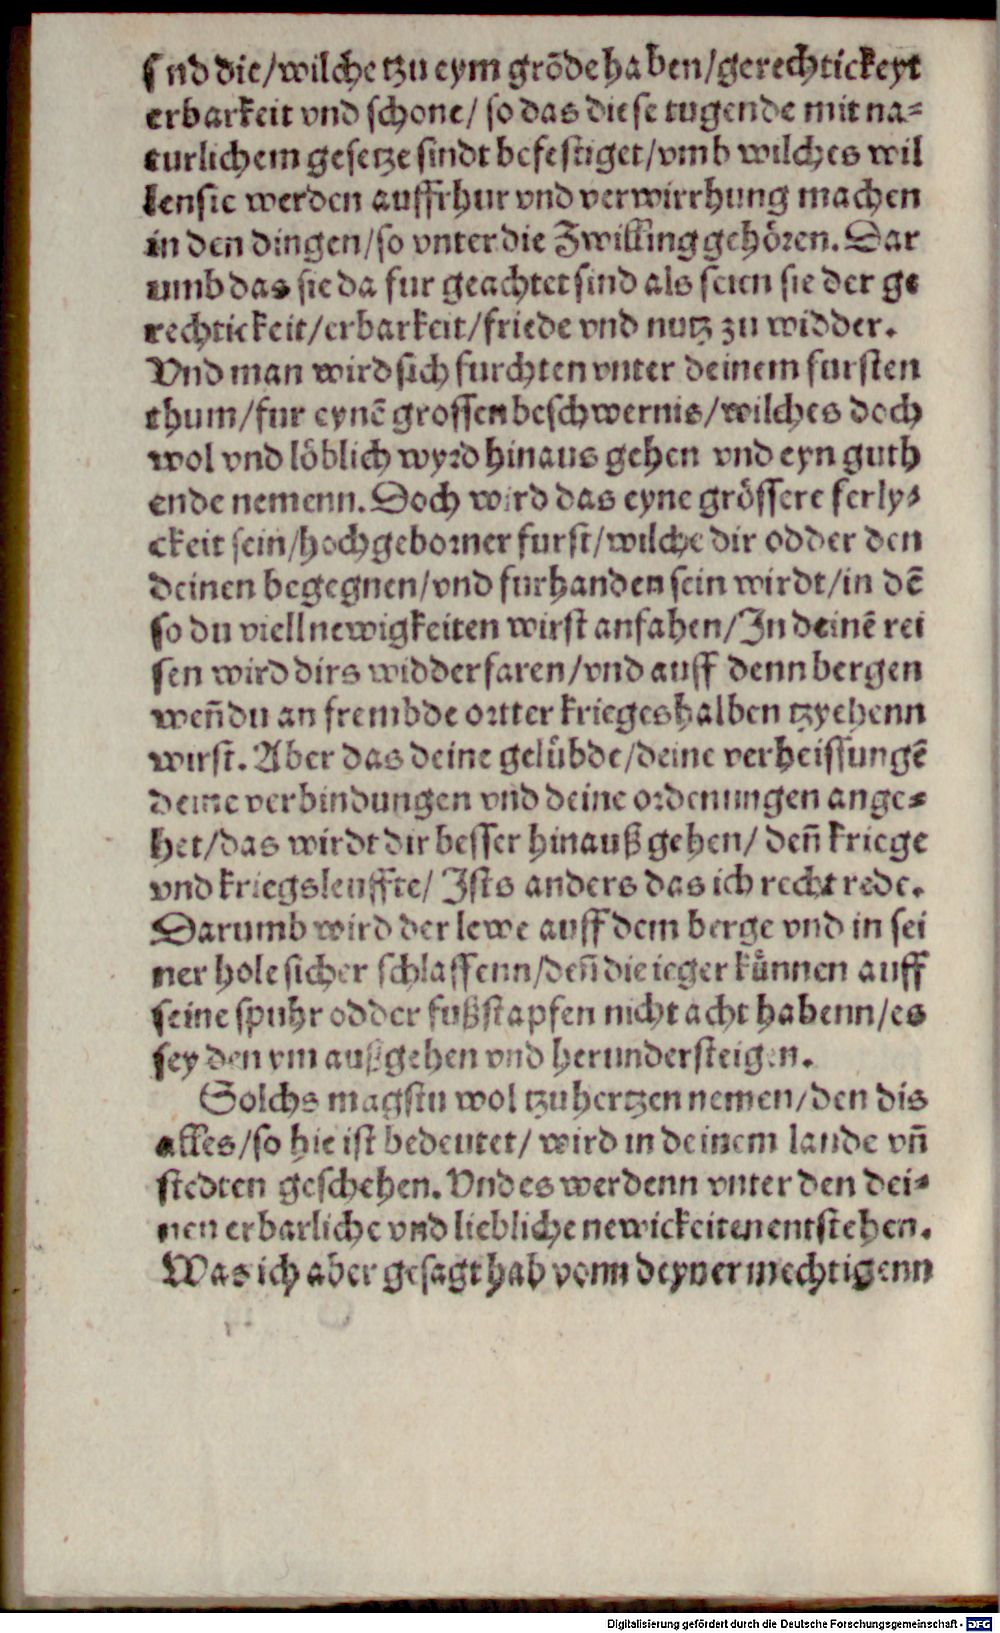 snd die/wilche tzu eym grōde haben/gerechtickeyt
erbarkeit vnd schone/ so das diese tugende mit na-
turlichem gesetze sindt befestiget/vmb wilches wil
lensie werden auffrhur vnd verwirrhung machen
in den dingen/so vnter die Zwilling gehören. Dar
umb das sie da fur geachtet sind als seien sie der ge
rechtickeit/erbarkeit/friede vnd nutz zu widder.
Vnd man wird sich furchten vnter deinem fursten
thum/fur eynē grossen beschwernis/wilches doch
wol vnd löblich wyrd hinaus gehen vnd eyn guth
ende nemenn. Doch wird das eyne grössere ferly-
ckeit sein/hochgeborner furst/wilche dir odder den
deinen begegnen/vnd furhanden sein wirdt/in dē
so du viell newigkeiten wirst anfahen/In deinē rei
sen wird dirs widderfaren/vnd auff denn bergen
weñ du an frembde ortter krieges halben tzyehenn
wirst. Aber das deine gelübde/deine verheissungē
deine verbindungen vnd deine ordenungen ange-
het/das wirdt dir besser hinauß gehen/ deñ kriege
vnd kriegsleuffte/ Ists anders das ich recht rede.
Darumb wird der lewe auff dem berge vnd in sei
ner hole sicher schlaffenn/deñ die ieger künnen auff
seine spuhr odder fußstapfen nicht acht habenn/es
sey den ym außgehen vnd herundersteigen.
Solchs magstu wol tzu hertzen nemen/den dis
alles/so hie ist bedeutet/ wird in deinem lande vñ
stedten geschehen. Vnd es werdenn vnter den dei-
nen erbarliche vnd liebliche newickeiten entstehen.
Was ich aber gesagt hab vonn deyner mechtigenn
Digitalisierung gefördert durch die Deutsche Forschungsgemeinschaft - DFG